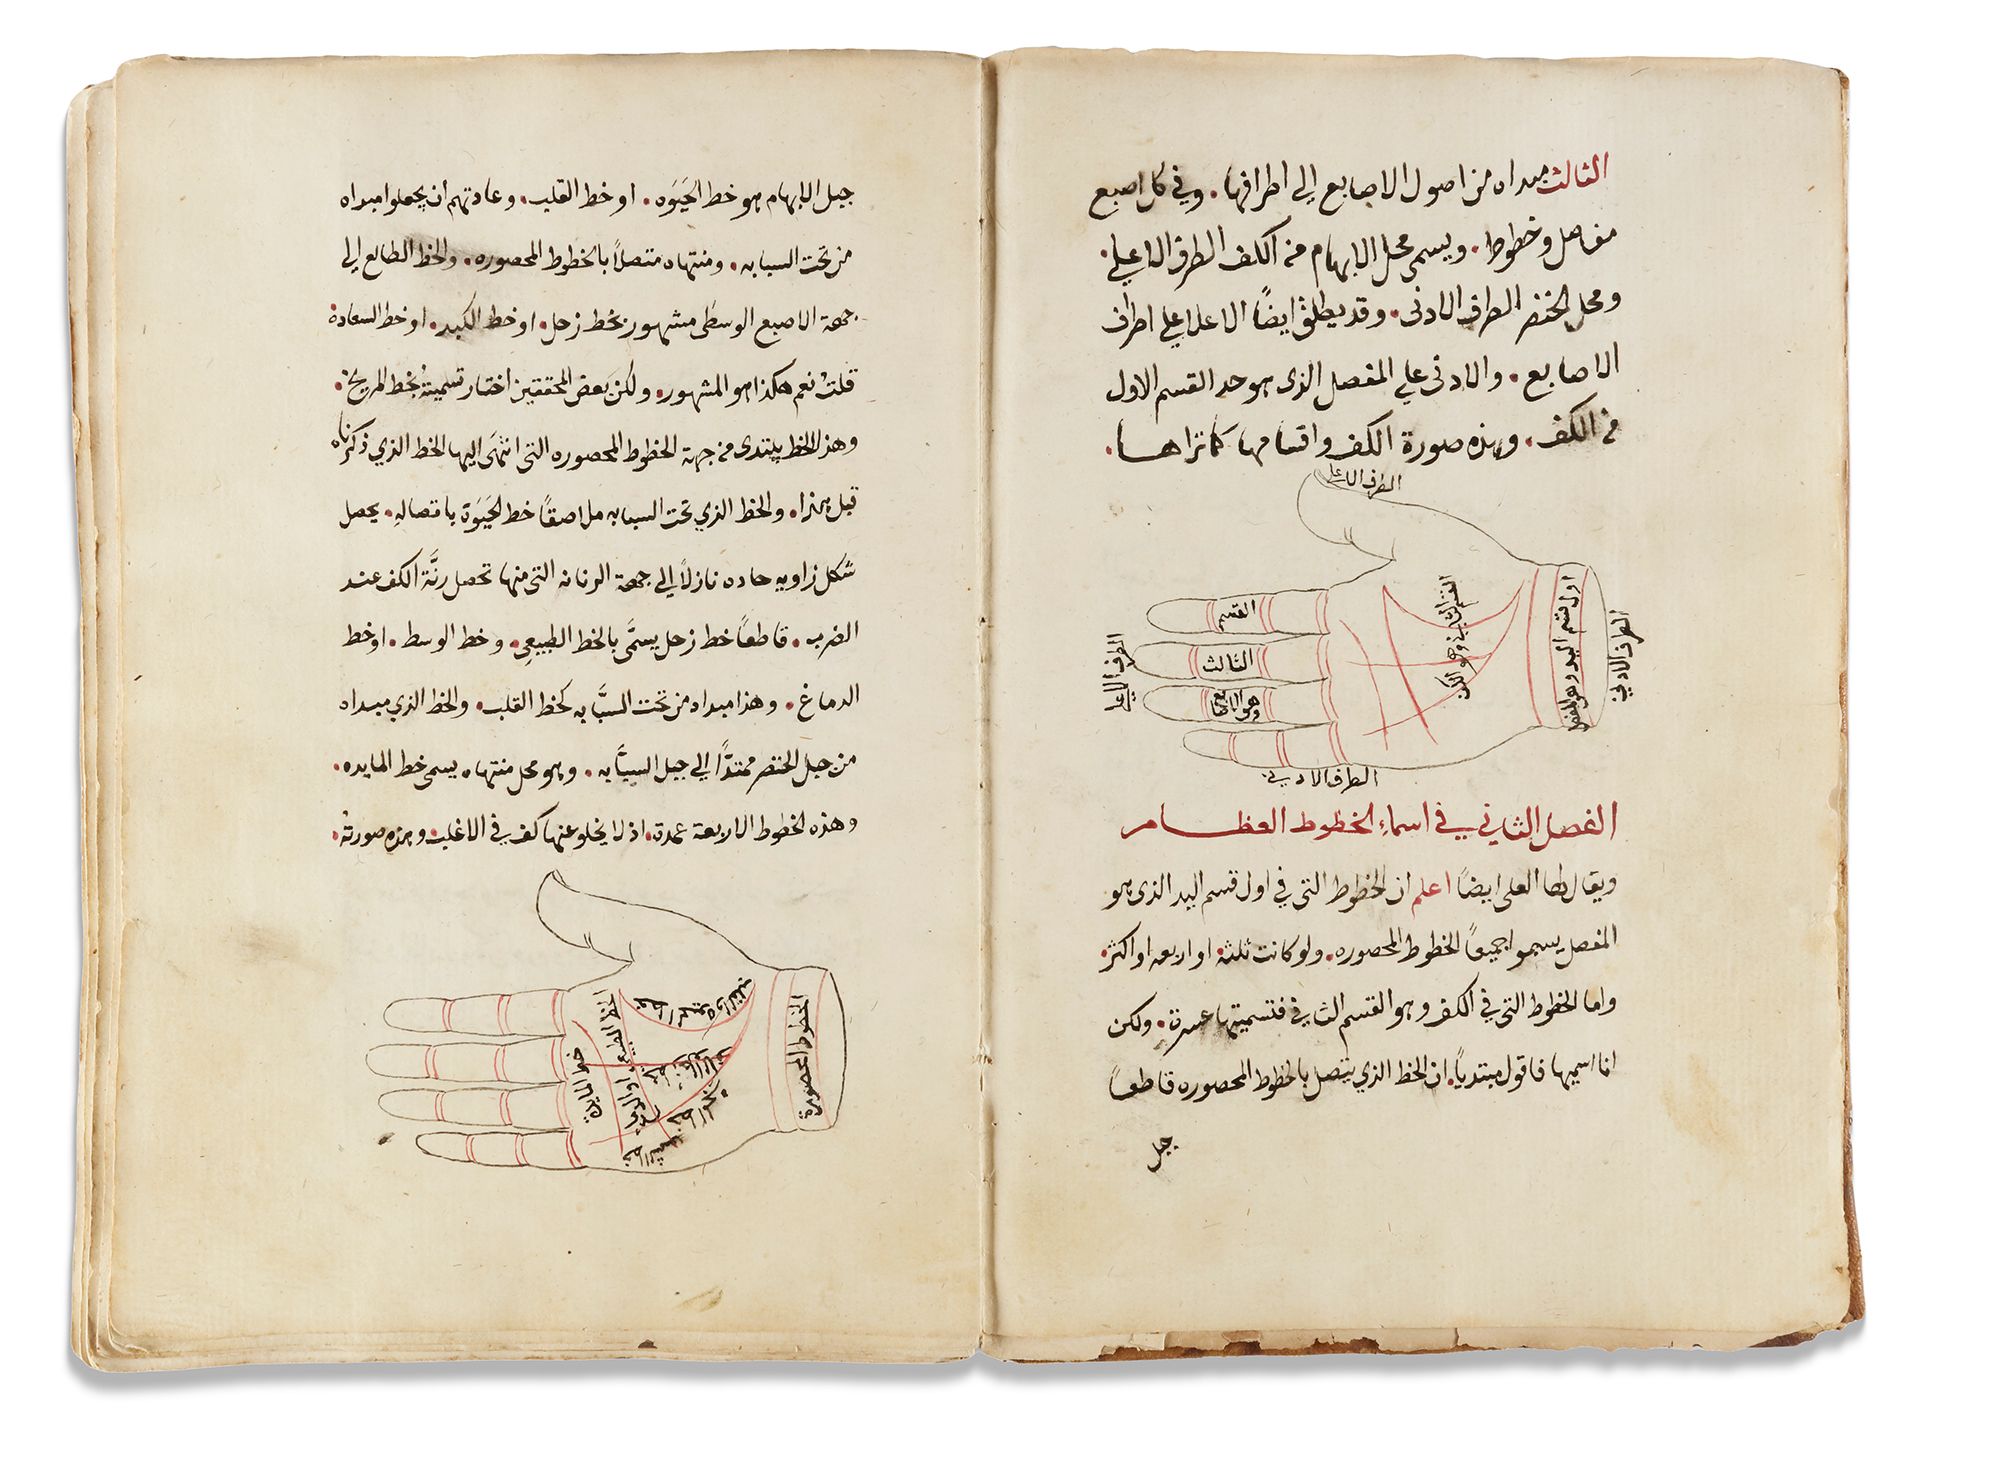 الثالث مبداه من اصول الاصابع الي اطرافها. وفي كل اصبع
مفاصل وخطوط. ويسمي محل الابهام من الكف الطرف الاعلي.
ومحل الخنصر الطرف الادني. وقد يطلق ايضاً الاعلا علي اطراف
الاصابع. والادني علي المفصل الذي هو حد القسم الاول
من الكف. وهذه صورة الكف واقسامها كما تراها.
الطرف الاعلي
القسم
الثالث
وهو الاصابع
القسم الثاني وهو الكف
اول قسم اليد وهو المفصل
الطرف الادني
الطرف الاعلي
الطرف الادني
الفصل الثاني في اسماء الخطوط العظام
ويقال لها العلي ايضاً اعلم ان الخطوط التي في اول قسم اليد الذي هو
المفصل يسمو جميعاً الخطوط المحصوره. ولو كانت ثلثه. او اربعه او اكثر.
واما الخطوط التي في الكف وهو القسم الثاني فتسميتها عسرة. ولكن
انا اسميها فاقول مبتدياً. ان الخط الذي يتصل بالخطوط المحصوره قاطعاً
جبل
جبل الابهام هو خط الحَيَوَه. او خط القلب. وعادتهم أن يجعلوا مبداه
من تحت السبابه. ومنتهاه متصلاً بالخطوط المحصوره. والخط الطالع الي
جهة الاصبع الوسطي مشهور بخط زحل. او خط الكبد. او خط السعادة
قلتُ نعم هكذا هو المشهور. ولكن بَعض المحققين اختار تسميتهُ بخط المريخ.
وهذا الخط يبتدي من جهة الخطوط المحصوره التي انتهَي اليها الخط الذي ذكرناه
قبل هذا. والخط الذي تحت السبابه ملاصقاً خط الحَيَوَة باتصالهِ. يحصل
شكل زاويه حاده نازلاً الي جهة الرنانه التي منها تحصل رنَّة الكف عند
الضرب. قاطعاً خط زحل يسمَّي بالخط الطبيعي. وخط الوسط. او خط
الدماغ. وهذا مبداه من تحت السبَّابه كخط القلب. والخط الذي مبداه
من جبل الخنصر ممتدًّا الي جبل السبَّابه. وهو محل منتهاه يسمي خط المايده.
وهذه الخطوط الاربعة عمدة. اذ لا يخلو عنها كف في الاغلب وهذه صورتهُ.
خط المايدة
الخطوط المحصورة